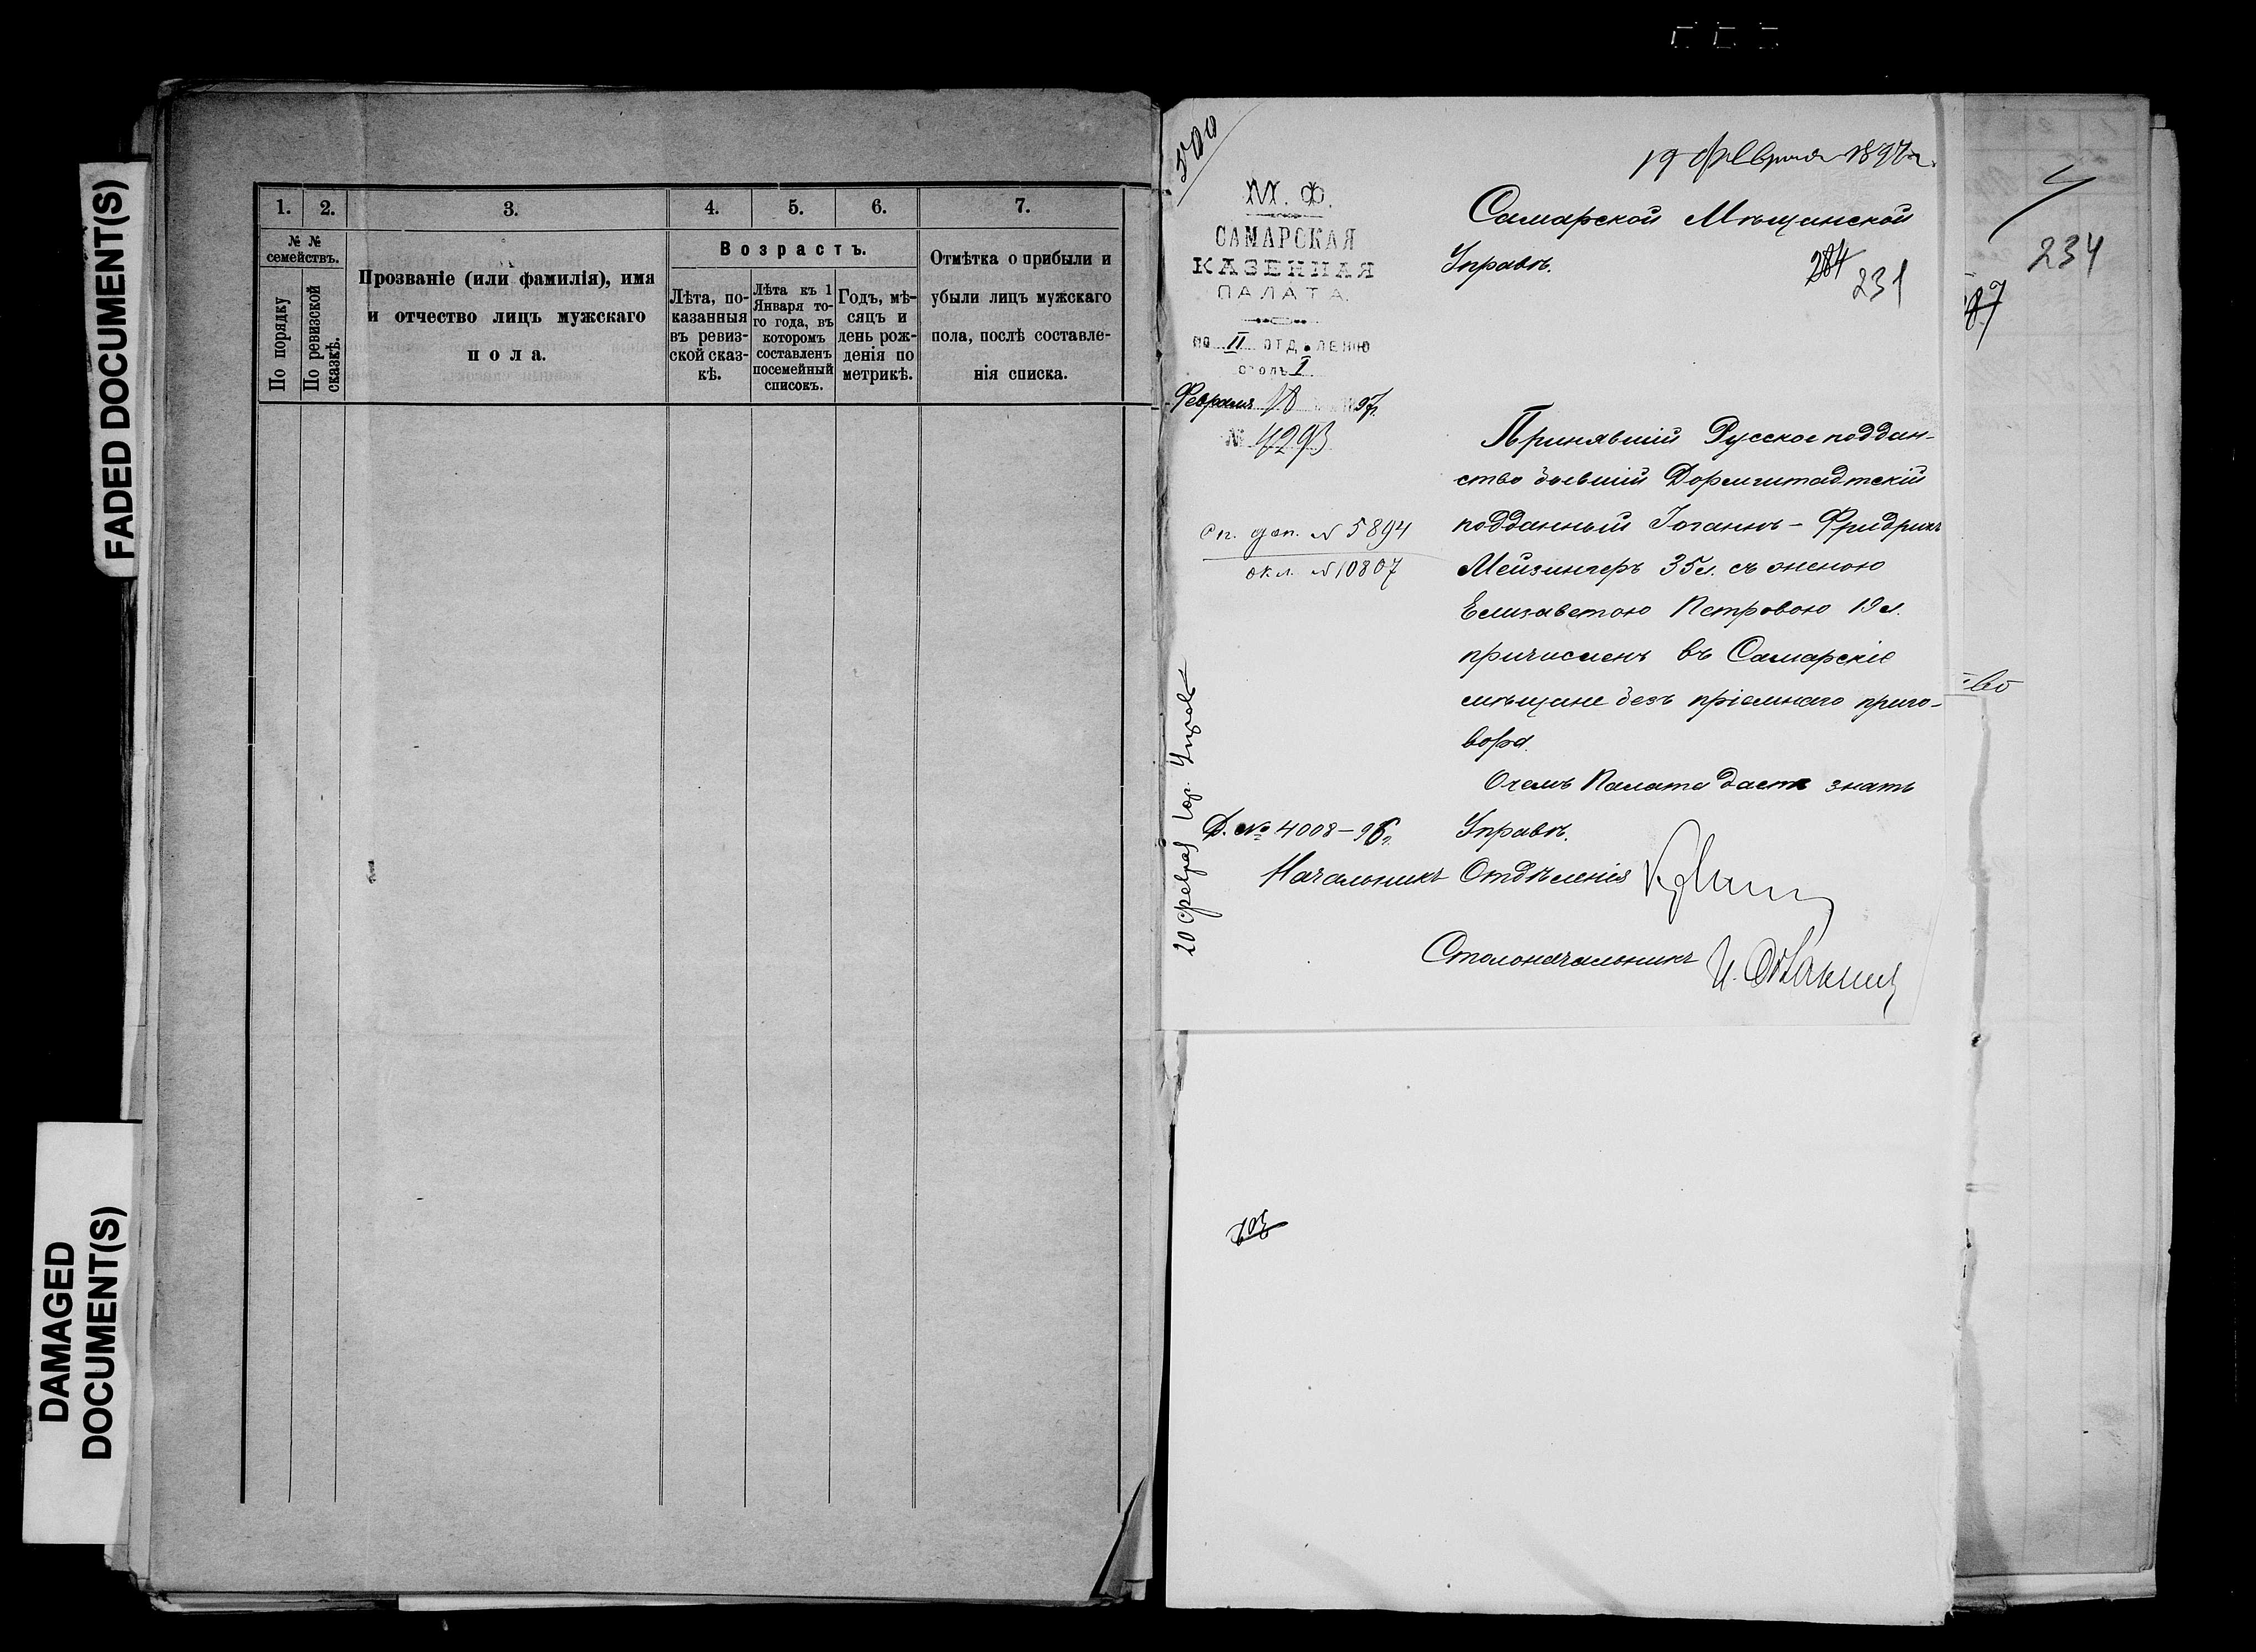 FADED DOCUMENT(S)
DAMAGED
DOCUMENT(S)
1. 2. 3. 4. 5. 6. 7.
№ №
семействъ.
По порядку
По ревизской
сказкѣ.
Прозваніе (или фамилія), имя
и отчество лицъ мужскаго
пола.
Возрастъ.
Лѣта, по-
казанныя
въ ревиз-
ской сказ-
кѣ.
Лѣта къ 1
Января то-
го года, въ
которомъ
составленъ
посемейный
списокъ.
Годъ, мѣ-
сяцъ и
день рож-
денія по
метрикѣ.
Отмѣтка о прибыли и
убыли лицъ мужскаго
пола, послѣ составле-
нія списка.
500
19 февраля 1897 г.
М. Ф.
САМАРСКАЯ
КАЗЕННАЯ
ПАЛАТА.
ПО II ОТДѢЛЕНІЮ
столъ I.
Февраля 18 97 г.
№ 4293
Самарской Мѣщанской
Управѣ.
284
231
234
87
Принявшій Русское поддан-
ство бывшій Дармштадтскій
подданный Іоганнъ-Фридрихъ
Мейзингеръ 35 л. съ женою
Елизаветою Петровою 19 л.
причисленъ въ Самарскіе
мѣщане безъ пріемнаго приго-
вора.
О чемъ Палата даетъ знать
Управѣ.
Сп. доп. № 5894
окл. № 10807
Д. № 4008-96 г.
20 февраля
Начальникъ Отдѣленія
Столоначальникъ
во